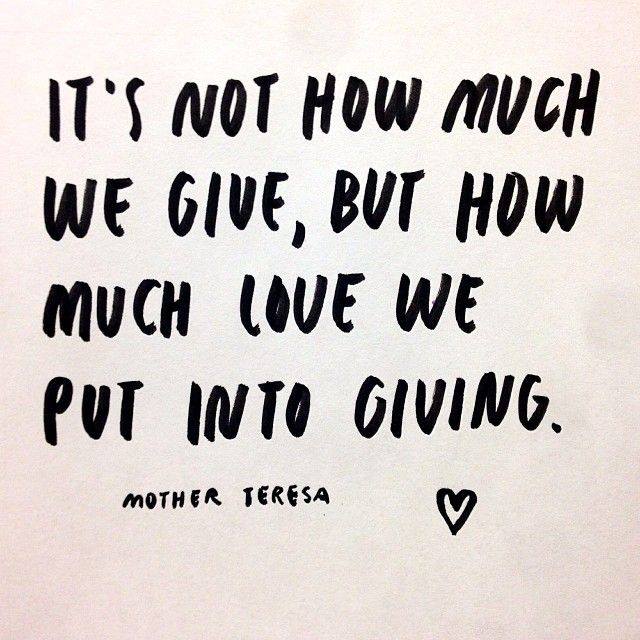 IT'S NOT HOW MUCH
WE GIVE, BUT HOW
MUCH LOVE WE
PUT INTO GIVING.
MOTHER TERESA